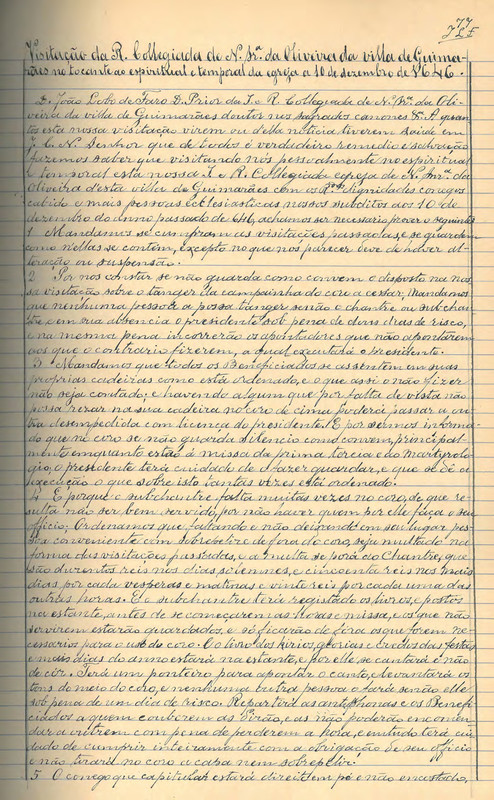 77
J L F
Visitação da R. Collegiada de N. Sr.ª da Oliveira da villa de Guima-
rães no tocante ao espiritual e temporal da egreja a 10 de dezembro de 1646.
D. João Lobo de Faro D. Prior da I. e R. Collegiada de N. Sr.ª da Oli-
veira da villa de Guimarães doutor nos sagrados canones &. A quan-
tos esta nossa visitação virem ou della noticia tiverem saude em
J. C. N. Senhor que de todos é verdadeiro remedio e salvação
Fazemos saber que visitando nós pessoalmente no espiritual
e temporal esta nossa I. e R. Collegiada egreja de N. Sr.ª da
Oliveira d'esta villa de Guimarães com os R.dos Dignidades conegos
cabido e mais pessoas ecclesiasticas nossos subditos aos 10 de
dezembro do anno passado de 646, achamos ser necessario prover o seguinte
1 Mandamos se cumpram as visitações passadas, e se guardem
como n'ellas se contêm, excepto no que nos parecer deve de haver al-
teração ou suspensão.
2 Por nos constar se não guarda como convem o disposto na nos-
sa visitação sobre o tanger da campainha do coro a cessar, Mandamos
que nenhuma pessoa a possa tanger senão o chantre ou subchan-
tre, e em sua absencia o presidente sob pena de dous dias de risco,
e na mesma pena incorrerão os apontadores que não apontarem
aos que o contrario fizerem, a qual executará o presidente.
3 Mandamos que todos os Beneficiados se assentem em suas
proprias cadeiras como está ordenado, e o que assi o não fizer
não seja contado; e havendo algum que por falta de vista não
possa rezar na sua cadeira no coro de cima poderá passar a ou-
tra desempedida com licença do presidente. E por sermos informa-
do que no coro se não guarda silencio como convem, principal-
mente emquanto estão á missa da prima tercia e do martyrolo-
gio, o presidente terá cuidado de o fazer guardar, e que se dê á
execução o que sobre isto tantas vezes está ordenado.
4 E porque o subchantre falta muitas vezes no coro, de que re-
sulta não ser bem servido, por não haver quem por elle faça o seu
officio; Ordenamos que faltando e não deixando em seu lugar pes-
soa conveniente com sobrepeliz e de fora do coro, seja multado na
forma das visitações passadas, e a multa se porá ao Chantre, que
são duzentos reis nos dias solemnes, e cincoenta reis nos mais
dias por cada vesperas e matinas e vinte reis por cada uma das
outras horas. E o subchantre terá registado os livros, e postos
na estante, antes de se começarem as horas e missa, e os que não
servirem estarão guardados, e só ficarão de fóra os que forem ne-
cessarios para o uso do coro. E o livro dos kirios, glorias e credos das festas
e mais dias do anno estará na estante, e por elle se cantará e não
de cór. Terá um ponteiro para apontar o canto, e levantará os
tons do meio do coro, e nenhuma outra pessoa o fará senão elle
sob pena de um dia de risco. Repartirá as antiphonas e os Benefi-
ciados a quem couberem as dirão, e as não poderão encomen-
dar a outrem com pena de perderem a hora, e em tudo terá cui-
dado de cumprir inteiramente com a obrigação de seu officio
e não tirará no coro a capa nem sobrepeliz.
5 O conego que capitular estará direito em pé e não encostado,